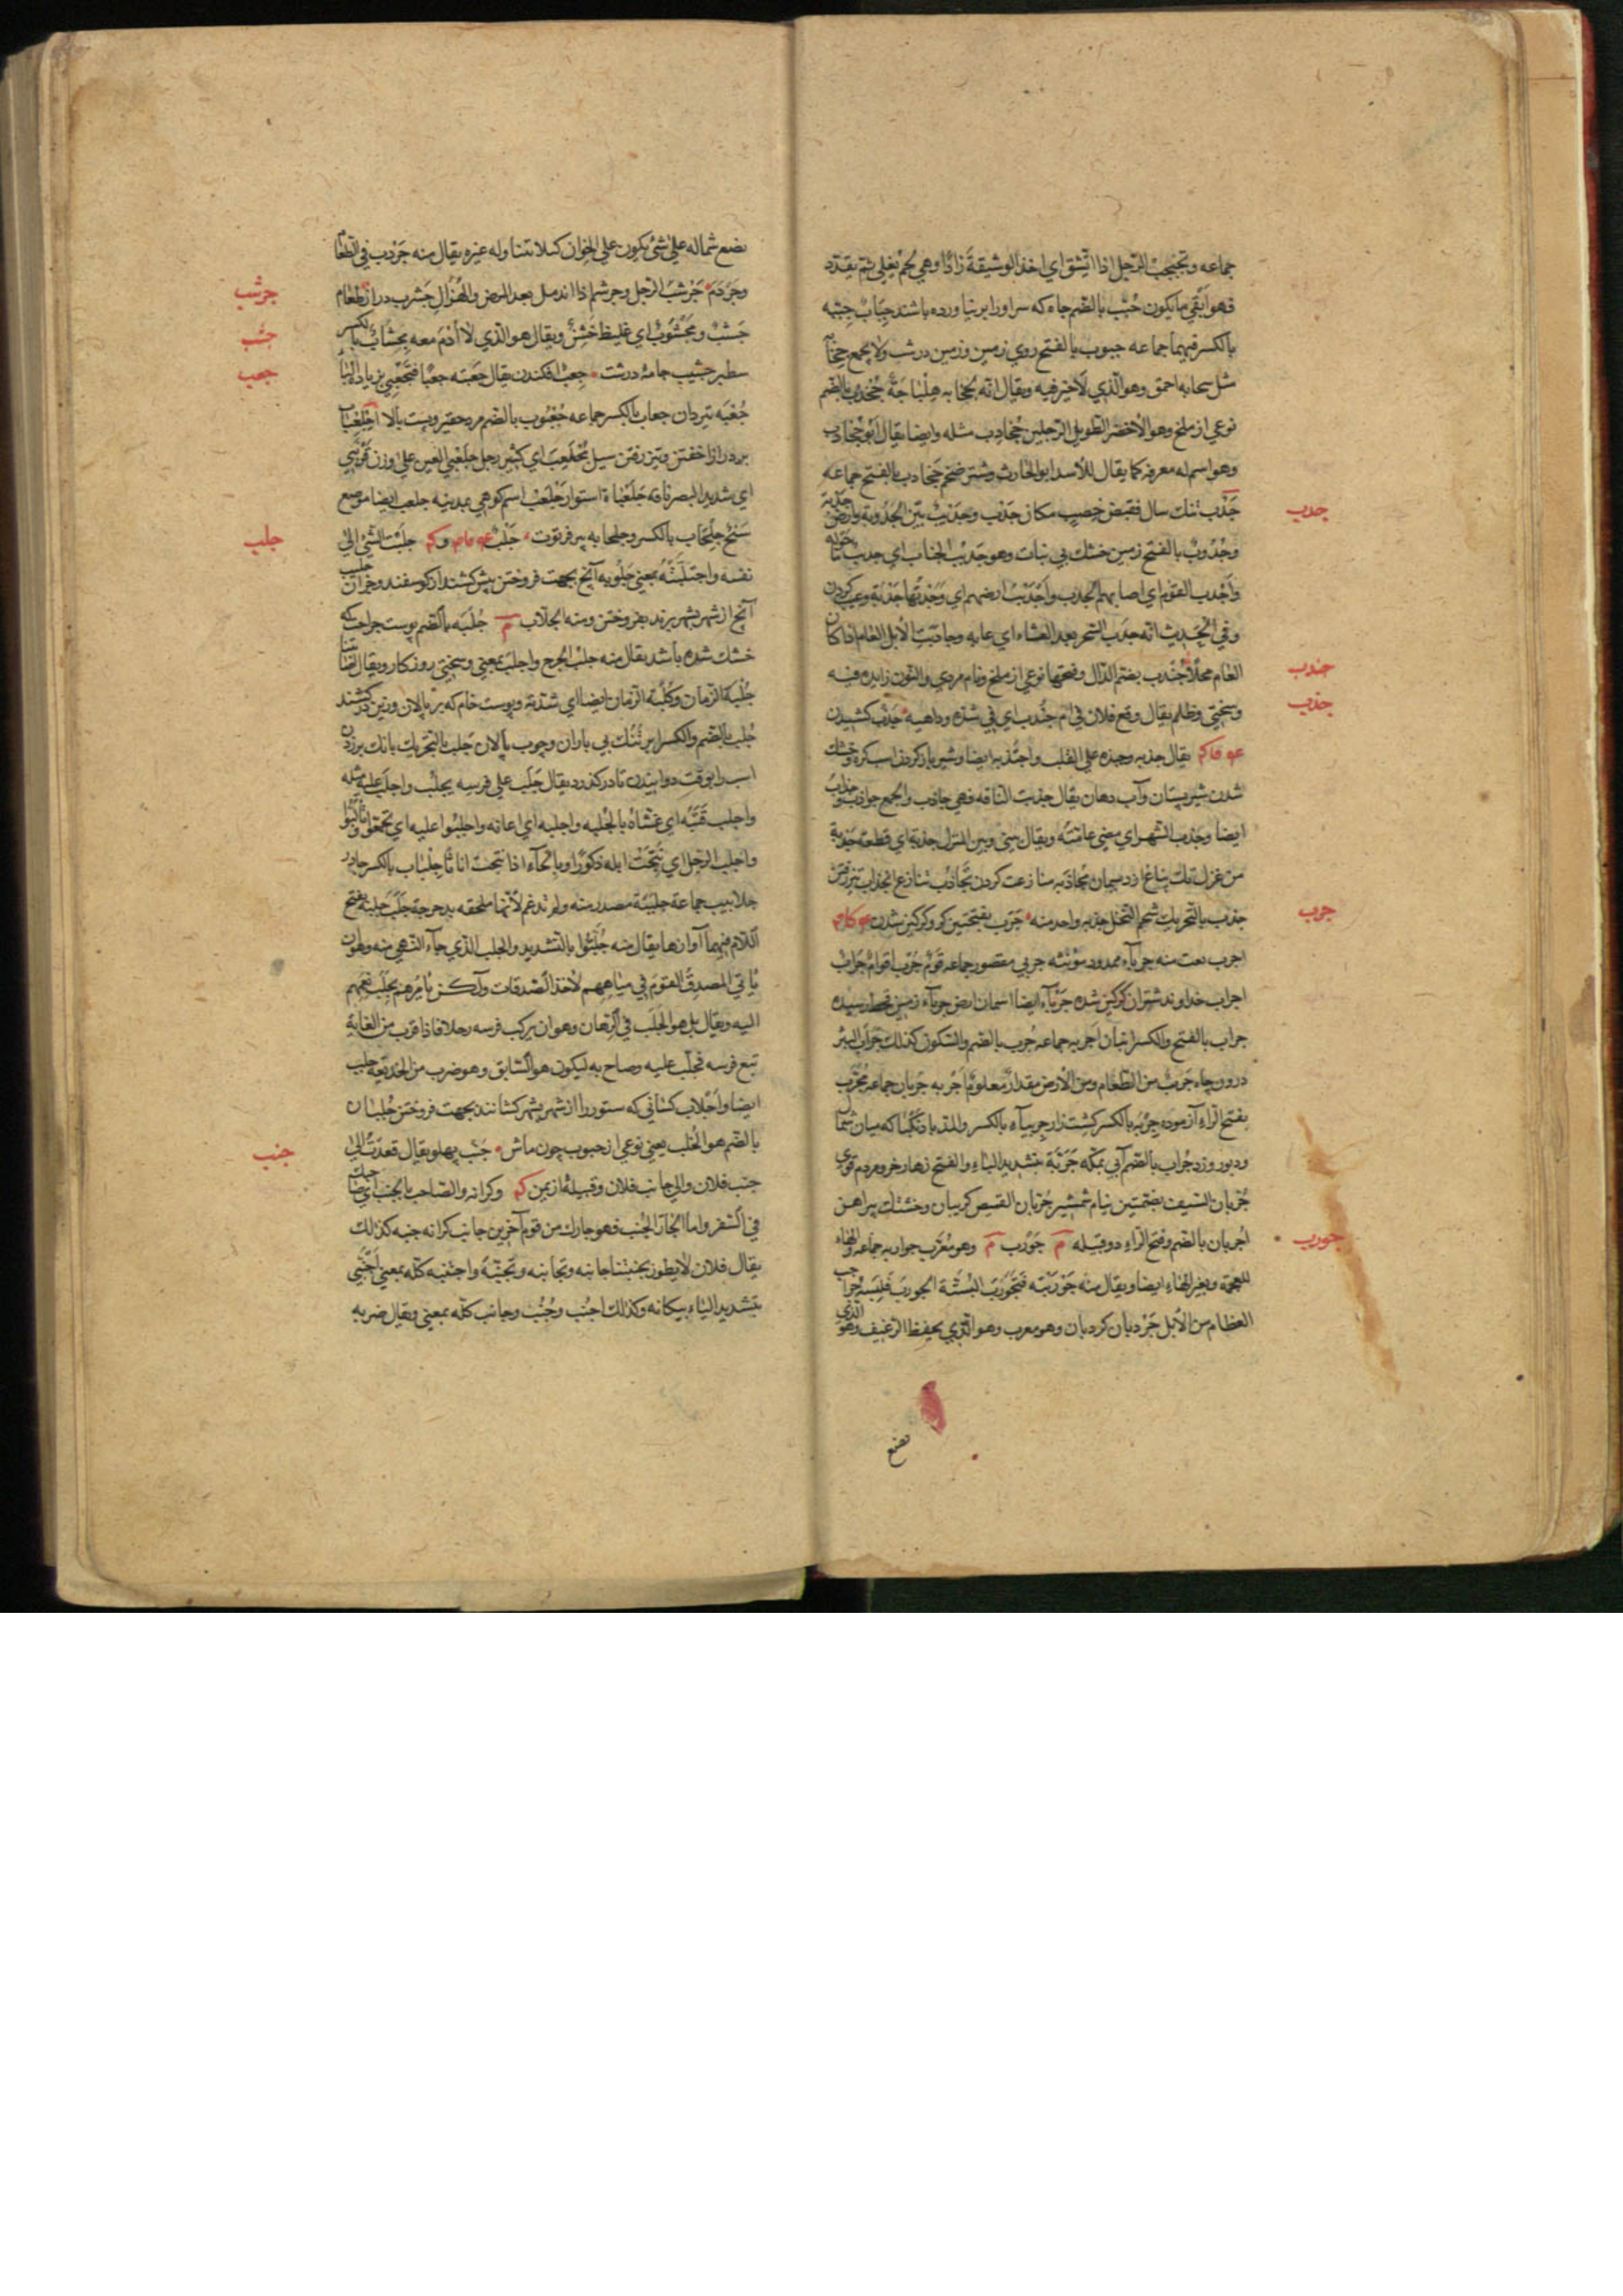 جماعه وتجبجب الرّجل اذا اتّشق اي اخذ الوشيقة زادًا وهي لحم يغلي ثم يقدّد
فهو ابقي ما يكون جُبّ بالضم چاه كه سر اورا بر نیاورده باشند جِبابٌ جِببه
بالكسر فيهما جماعه جبوب بالفتح روي زمين وزمين درشت ولا يجمع
وهو الّذي لا خير فيه ويقال انّه
نوعي از ملخ وهو الاخضر الطويل الرّجلين جُخادِب مثله وايضا يقال ابو جُخادب
وهو اسم له معرفه كما يقال للاسد ابو الحارث وشتر ضخم جَخادب بالفتح جماعه
جدب
جَدْب تنك سال نقيض خصب مكان جَدْب وجَدِيْب بيّن الجُدُوبة وارض جدبة
وجُدُوبٌ بالفتح زمين خشك بي نبات وهو جَدِيْب الجناب اي جديب
واَجْدب القوم اي اصابهم الجدب واَجْدَبْتُ ارضهم اي وَجَدْتُها جَدْبَة وعيب كردن
وفي الحديث انّه جدب السّمر بعد العشاء اي عابه وجادبَتِ الابل العام اذا كان
جندب
العام محلا جُنْدب بضم الدّال وفتحها نوعي از ملخ ونام مردي والنون زايده فيه
جذب
وسختي وظلم يقال وقع فلان في ام جُنْدب اي في شدّه وداهيه جذب كشيدن
يقال جذبه وجبذه علي القلب واجتذبه ايضا وشير باز كردن از
شدن شير پستان وآب دهان يقال جذبت الناقه فهي جاذب والجمع جواذب
ايضا وجذب الشّهر اي مضي عامّته ويقال بيني وبين المنزل جذبة اي قطعة
من غزل مجاذبه منازعت كردن تجاذُب تنازع انجذاب تيز رفتن
جرب
جذب بالتحريك شحم النخل جذبه واحد منه جَرَب بفتحتين كر وكركين شدن
اجرب نعت منه جرباء ممدود مؤنثه جربي مقصور جماعه قَوْمٌ جُرْب اقوامٌ جِرابٌ
اجراب خداوند شتران كركين شده جرباء ايضا اسمان ارض جرباء زمين قحط رسيده
جراب بالفتح والكسر انبان اجربه جماعه جُرب بالضم والسكون كذلك جراب البئر
درون چاه جَرِيبٌ من الطّعام ومن الارض مقدارٌ معلومٌ اجربه جُربان جماعه مُجَرَّب
بفتح الرّاء آزموده جِربَه بالكسر كشت زار جِربياء بالكسر والمد باد نكبا كه ميان شمال
ودبور وزد جُراب بالضم آبي بمكّه جَرَبّة بتشديد الباء والفتح
جُربان السّيف بضمتين نيام شمشير جُربان القميص كريبان وخشتك پيراهن
جورب
اجربان بالضم وفتح الرّاء دو قبيله م جَوْرَب م وهو مُعَرّب جواربه جماعه والهاء
للعجمة وبغير الهاء ايضا ويقال منه جَوْرَبْته فَتَجَوْرَبَ البستُه الجورَبَ فلبسه
العظام من الابل جَرْدبان كردبان وهو معرب وهو الّذي يحفظ الرّغيف وهو الذي
يضع
يضع شماله علي شئ يكون علي الخوان كيلا يتناوله غيره يقال منه جَرْدب في الطعام
جرشب
وجردم جَرْشَبَ الرّجل وجرشم اذا اندمل بعد المرض والهزال جَشب در از طعام
جشب
جَشبٌ ومَجْشُوبٌ اي غليظ خَشِنٌ ويقال هو الّذي لا اُدْمَ معه مِجْشاب بالكسر
جعب
سطبر جشيب جامهٔ درشت جعب افكندن يقال جَعَبْته جعبًا
جُعْبَه تيردان جعاب بالكسر جماعه جُعْبُوب بالضم مرد حقير وپست بالا
بر درازا خفتن وتيز رفتن سيل مُجْلَعِب اي كثير رجل جَلَعْبي العين علي وزن
اي شديد البصر ناقة جَلَعْباة استوار جَلْعَب اسم كوهي بمدينه جلعب ايضا موضع
جلب
شيخ جِلْحاب بالكسر وجلحابه پير فرتوت جَلْب وكم جلبت الشّئ الي
نفسه واجتلبته بمعني جَلُوبه آنچ بجهت فروختن پيش كشند از كوسفند
آنچ از شهر بشهر برند بفروختن ومنه الجلاب م جُلْبَه بالضم پوست جراحت كه
خشك شده باشد يقال منه جلب الجرح واجلب بمعني وسختي روزكار ويقال
جُلْبة الزّمان وكُلْبة الزّمان ايضا اي شدّته وپوست خام كه بر پالان وزين كشند
جُلب بالضم والكسر ابر تُنُك بي باران وچوب پالان جَلب بالتحريك بانك برزدن
اسب را بوقت دوانيدن تا در كذرد يقال جَلَب علي فرسه يجلُب واجلَب عليه مثله
واجلب قَتَبَه اي غشّاه بالجُلبه واجلبه اي اعانه واجلبوا عليه اي تجمّعوا وتألّبوا
واجلب الرّجل اي نُتِجَتْ ابله ذكورًا وبالحاء اذا نتجت اناثًا جِلْباب بالكسر چادر
جلابيب جماعة جلببة مصدر منه ولم تدغم لانّها ملحقه بدحرجة جَلَب جَلَبة بفتح
اللام فيهما آوازها يقال منه جَلّبُوا بالتشديد والجلب الّذي جاء النهي منه وهو ان
يأتي المصدِقُ القومَ في مياههم لاخذ الصّدقات ولكن يأمرهم بجلب نعمهم
اليه ويقال بل هو الجلَب في الرّهان وهو ان يركب فرسه رجلا فاذا قرب من الغاية
تبع فرسه فجلّب عليه وصاح به ليكون هو السّابق وهو ضرب من الخديعة جلب
ايضا واَجْلاب كساني كه ستور را از شهر بشهر كشانند بجهت فروختن جُلْبان
جنب
بالضم هو الخُلّب يعني نوعي از حبوب چون ماش جَنْب پهلو يقال قعدتُ الي
جنب فلان والي جانب فلان وقبيلهٔ از يمن كم وكرانه والصّاحب بالجنب
في السّفر واما الجار الجُنب فهو جارك من قوم آخرين جانب كرانه جنبه كذلك
يقال فلان لا يطور بجنبتنا جانبه وتجانبه وتجنّبه واجتنبه كلّه بمعني اجنبي
بتشديد الياء بيكانه وكذلك اجنب وجُنُب وجانب كلّه بمعني ويقال ضربه